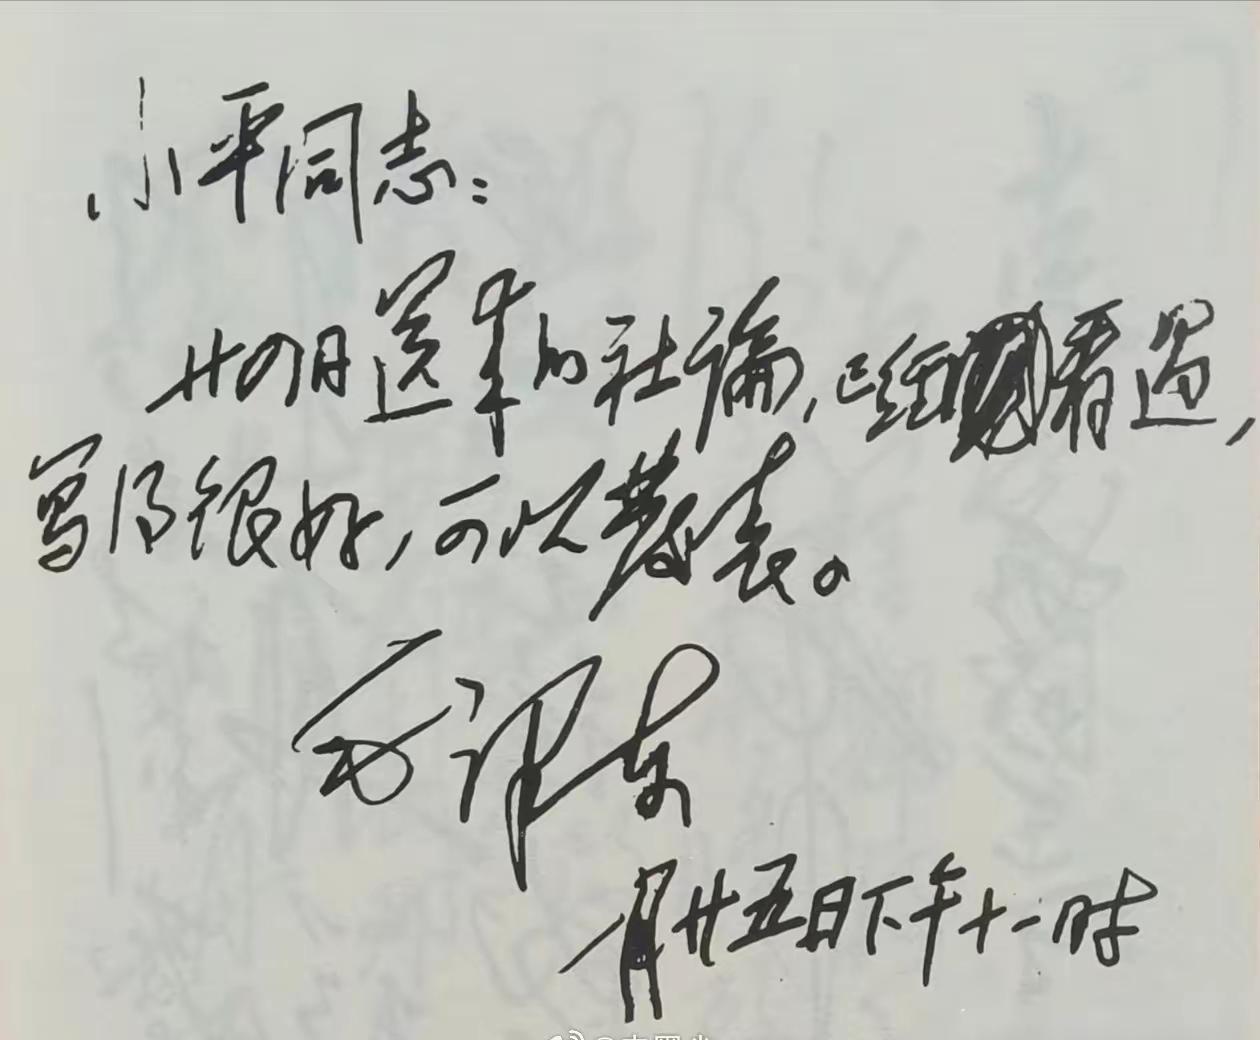 小平同志：
廿四日送来的社论，已经看过，
写得很好，可以发表。
毛泽东
月廿五日下午十一时